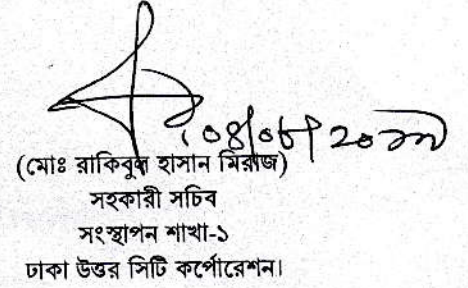 (মোঃ রাকিবুল হাসান মিরাজ)
সহকারী সচিব
সংস্থাপন শাখা-১
ঢাকা উত্তর সিটি কর্পোরেশন।